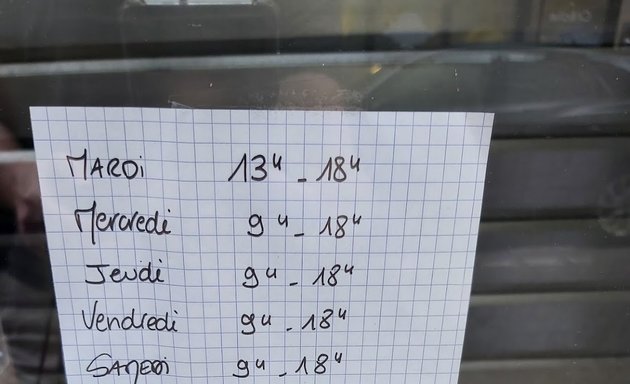 MARDi 13H - 18H
Mercredi 9H - 18H
Jeudi 9H - 18H
Vendredi 9H - 18H
SAMEDi 9H - 18H